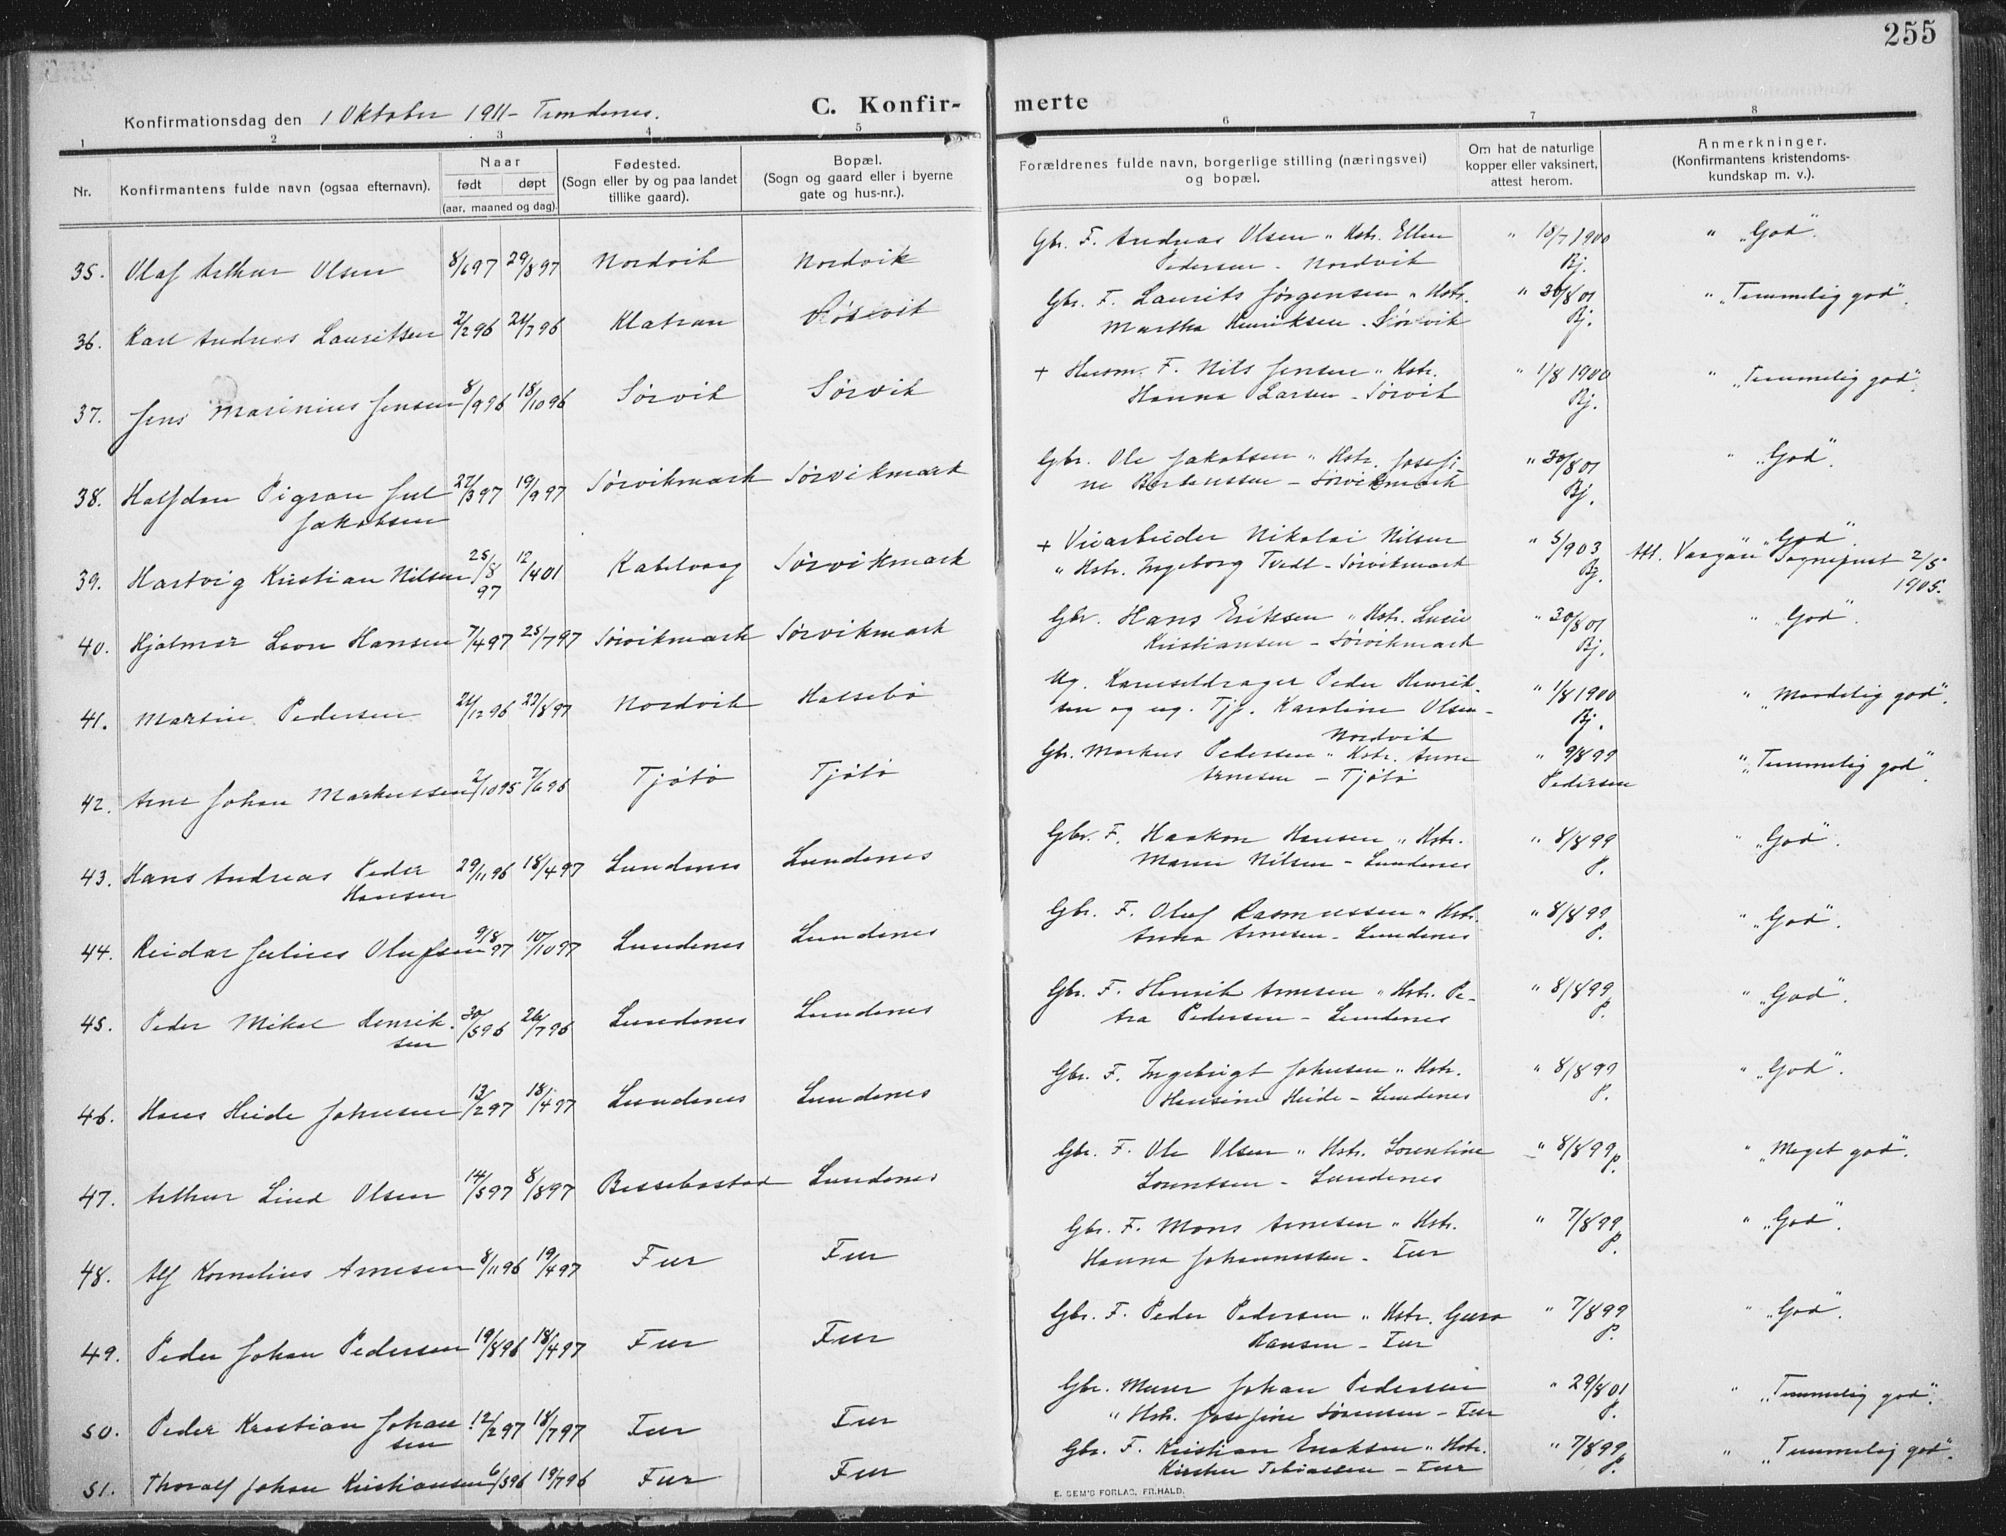 255
Konfirmationsdag den 1 Oktober 1911 - Trondenes.
C. Konfir- merte
1 2 3 4 5 6 7 8
Nr. Konfirmantens fulde navn (ogsaa efternavn). Naar født døpt (aar, maaned og dag). Fødested. (Sogn eller by og paa landet tillike gaard). Bopæl. (Sogn og gaard eller i byerne gate og hus-nr.). Forældrenes fulde navn, borgerlige stilling (næringsvei) og bopæl. Om hat de naturlige kopper eller vaksinert, attest herom. Anmerkninger. (Konfirmantens kristendoms- kundskap m. v.).
35. Olaf Arthur Olsen 8/6 97 29/8 97 Nordvik Nordvik Gbr. F. Andreas Olsen " Hstr. Ellen " 18/7 1900 " "God".
Pedersen - Nordvik Bj.
36. Karl Andreas Lauritsen 2/2 96 21/7 96 Klatran Sørvik Gbr. F. Laurits Jørgensen " Hstr. " 30/8 01 " "Temmelig god".
Martha Henriksen - Sørvik Bj.
37. Jens Marinius Jensen 8/9 96 18/10 96 Sørvik Sørvik + Husm. F. Nils Jensen " Hstr. " 1/8 1900 " "Temmelig god".
Hanna Larsen - Sørvik Bj.
38. Halfdan Pigran Jul 27/3 97 19/9 97 Sørvikmark Sørvikmark Gbr. Ole Jakobsen " Hstr. Josefi- " 30/8 01 " "God".
Jakobsen ne Bertenssen - Sørvikmark Bj.
39. Hartvig Kristian Nilsen 25/8 97 12/4 01 Kabelvaag Sørvikmark + Veiarbeider Nikolai Nilsen " 5/9 03 " "God".
" Hstr. Ingeborg Tvedt - Sørvikmark Bj. Att. Vaagan Sognepræst 2/5 1905.
40. Hjalmar Leon Hansen 7/4 97 25/7 97 Sørvikmark Sørvikmark Gbr. Hans Eriksen " Hstr. Lucie " 30/8 01 " "God".
Kristiansen - Sørvikmark Bj.
41. Martin Pedersen 21/12 96 22/8 97 Nordvik Halsebø Ug. Peder Henrik- " 1/8 1900 " "Maadelig god".
sen og ug. Tjp. Karoline Olsen - Bj.
Nordvik
42. Arne Johan Markussen 2/10 95 7/6 96 Tjøtø Tjøtø Gbr. Markus Pedersen " Hstr. Anne " 9/8 99 " "Temmelig god".
Arnesen - Tjøtø Pedersen
43. Hans Andreas Peder 29/11 96 18/4 97 Lundenes Lundenes Gbr. F. Haakon Hansen " Hstr. " 8/8 99 " "God".
Hansen Maren Nilsen - Lundenes P.
44. Reidar Julius Olufsen 9/8 97 10/10 97 Lundenes Lundenes Gbr. F. Oluf Rasmussen " Hstr. " 8/8 99 " "God".
Anna Arnesen - Lundenes P.
45. Peder Mikal Henrik- 30/5 96 26/7 96 Lundenes Lundenes Gbr. F. Henrik Arnesen " Hstr. Pe- " 8/8 99 " "God".
sen tra Pedersen - Lundenes P.
46. Hans Heide Johnsen 13/2 97 18/4 97 Lundenes Lundenes Gbr. F. Ingebrigt Johnsen " Hstr. " 8/8 99 " "God".
Hansine Heide - Lundenes P.
47. Arthur Lind Olsen 14/5 97 8/8 97 Bessebostad Lundenes Gbr. F. Ole Olsen " Hstr. Lorentine " 8/8 99 P. " "Meget god".
Lorentsen - Lundenes
48. Alf Kornelius Arnesen 8/11 96 19/4 97 Fur Fur Gbr. F. Mons Arnesen " Hstr. " 7/8 99 " "God".
Hanna Johannessen - Fur P.
49. Peder Johan Pedersen 19/8 96 18/4 97 Fur Fur Gbr. F. Peder Pedersen " Hstr. Gura " 7/8 99 " "God".
Hansen - Fur P.
50. Peder Kristian Johan- 12/2 97 18/7 97 Fur Fur Gbr. Murer Johan Pedersen " 29/8 01 " "Temmelig god".
sen " Hstr. Josefine Sørensen - Fur P.
51. Thoralf Johan Kristiansen 6/5 96 19/7 96 Fur Fur Gbr. F. Kristian Eriksen " Hstr. " 7/8 99 " "Temmelig god".
Kirsten Tobiassen - Fur P.
E. SEM'S FORLAG, FR.HALD.